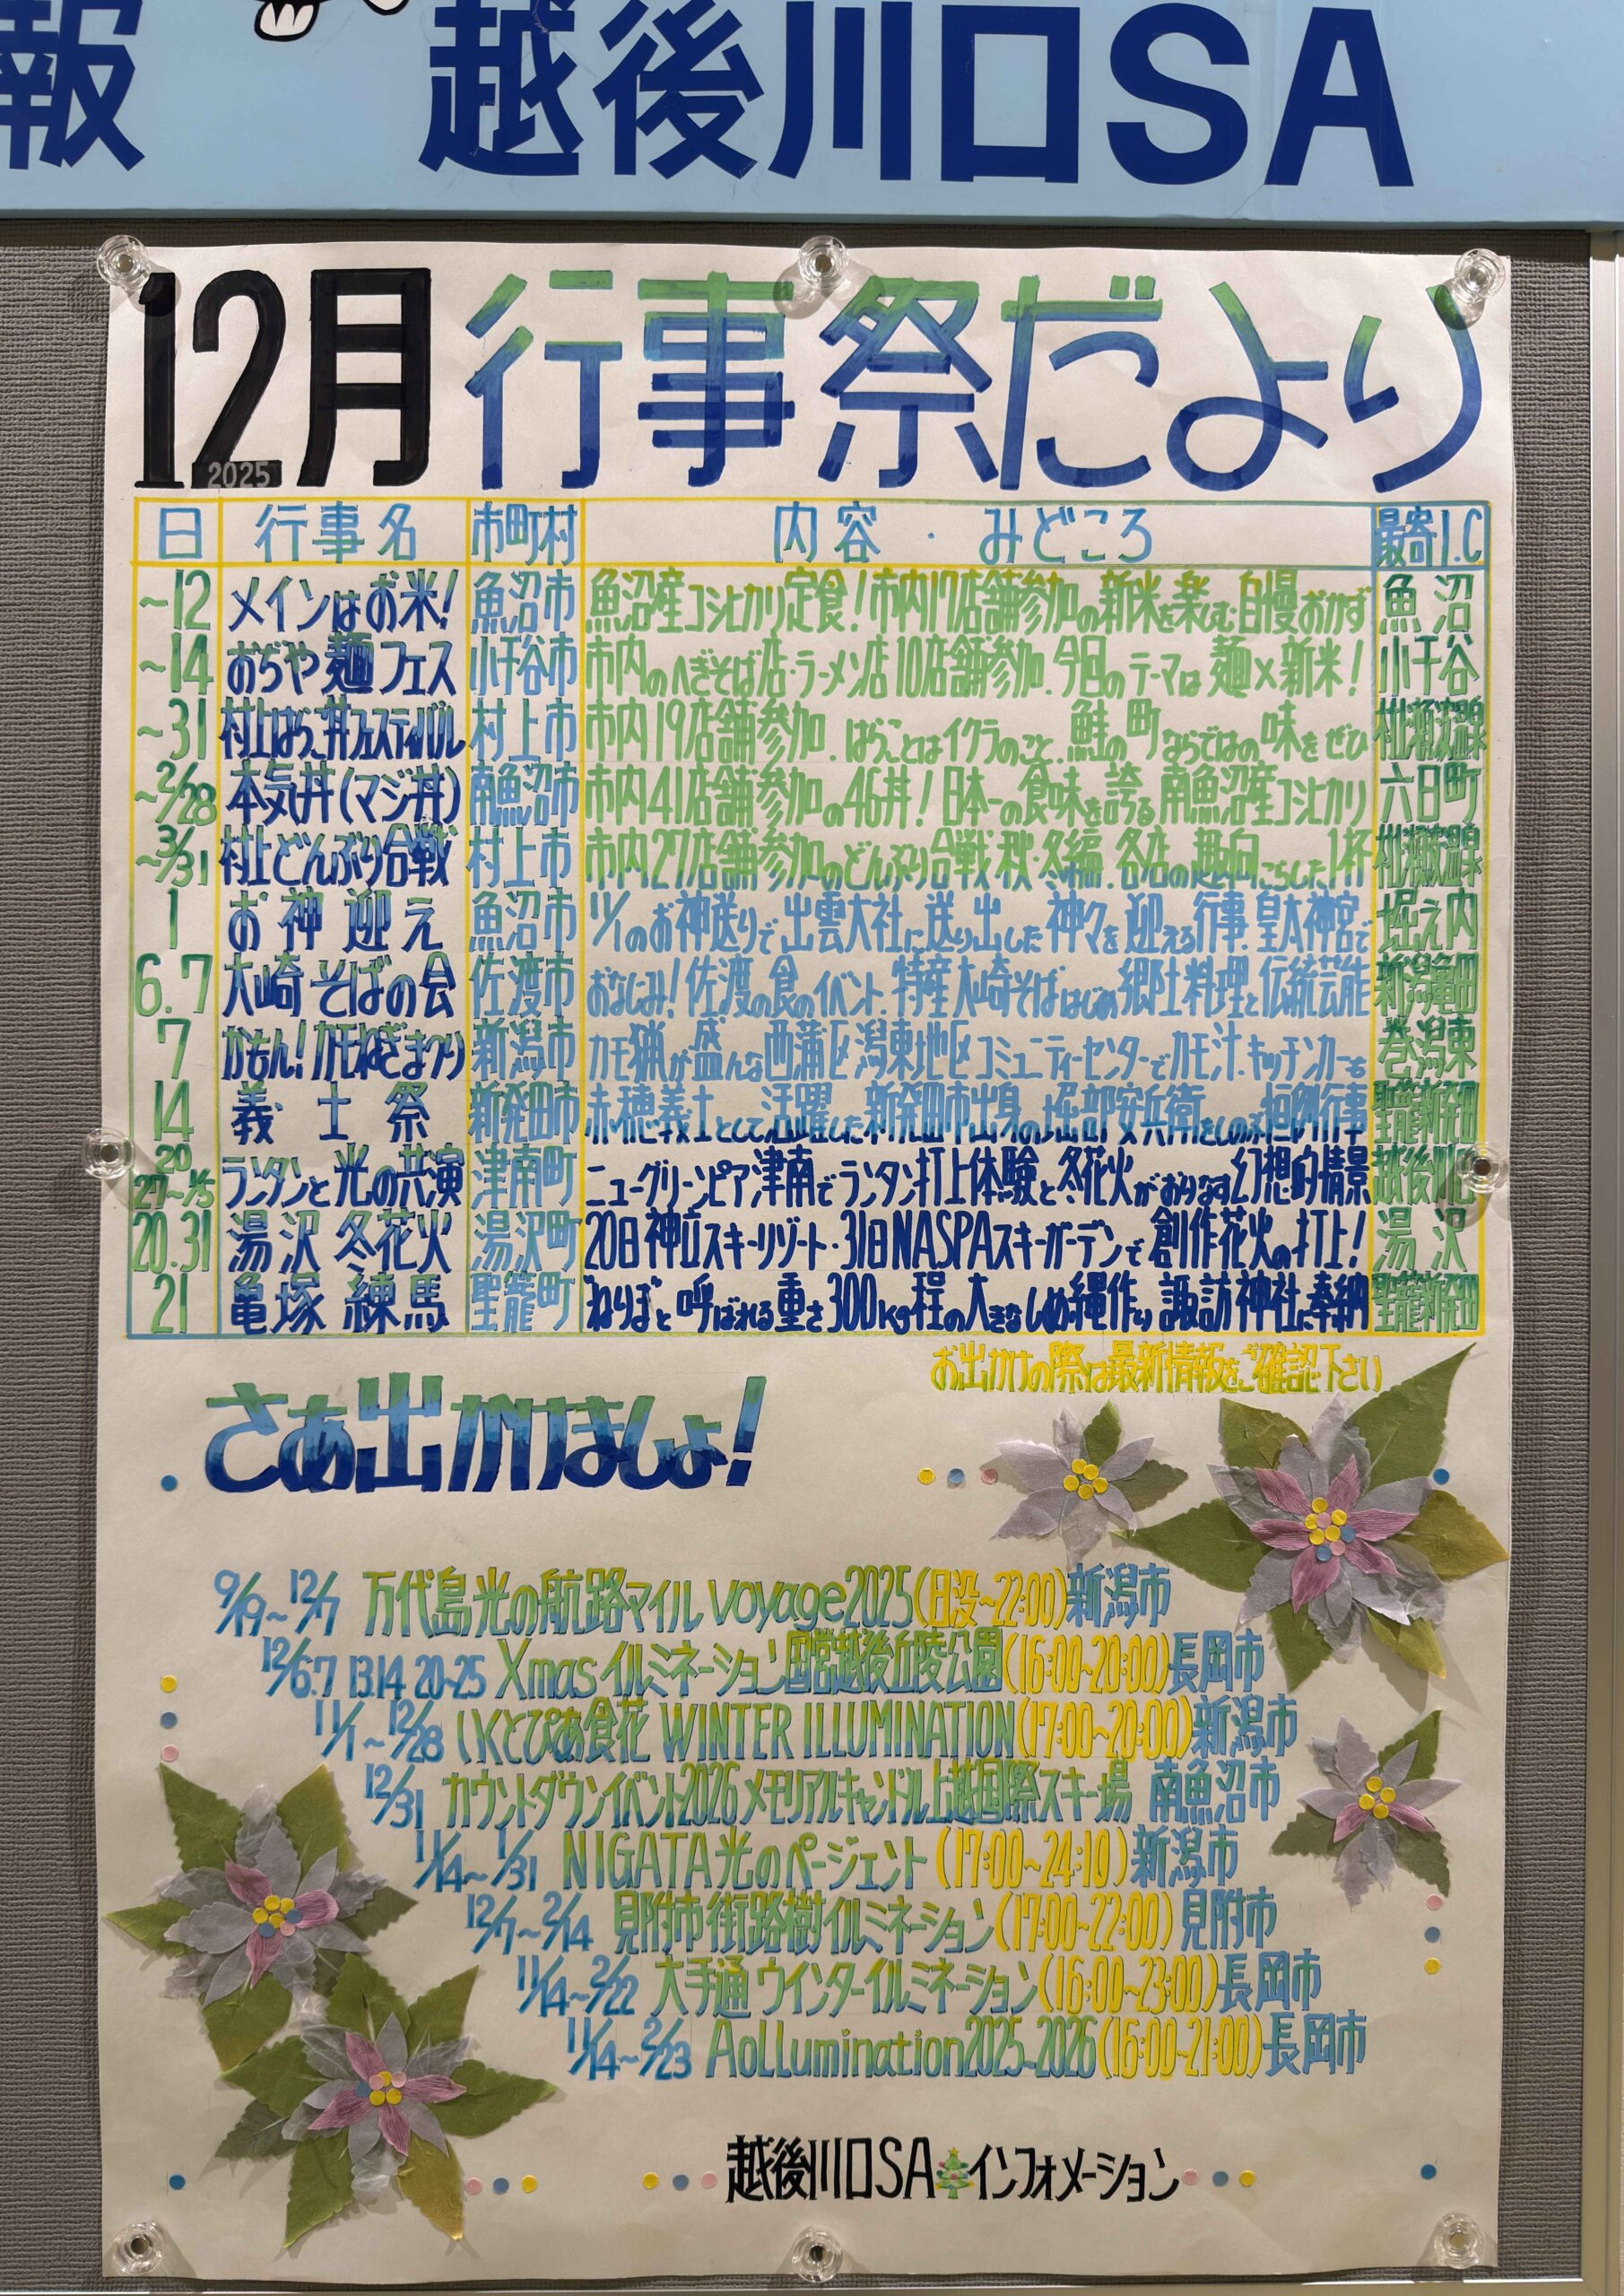 報 越後川口SA
12月行事祭だより
2025
日 行事名 市町村 内容・みどころ 最寄I.C
~12 メインはお米! 魚沼市 魚沼産コシヒカリ定食!市内17店舗参加の新米を楽しむ自慢おかず 魚沼
~14 おぢや麺フェス 小千谷市 市内のへぎそば店・ラーメン店10店舗参加.今回のテーマは麺×新米! 小千谷
~31 村上はらこ丼フェスティバル 村上市 市内19店舗参加.はらことはイクラのこと.鮭の町ならではの味をぜひ
~2/28 本気丼(マジ丼) 南魚沼市 市内41店舗参加の46丼!日本一の食味を誇る南魚沼産コシヒカリ 六日町
~3/31 村上どんぶり合戦 村上市 市内27店舗参加のどんぶり合戦秋・冬編.各店の趣向こらした1杯
1 お神迎え 魚沼市 11/1のお神送りで出雲大社に送り出した神々を迎える行事.皇大神宮で 堀之内
6.7 大崎そばの会 佐渡市 おなじみ!佐渡の食のイベント.特産大崎そばはじめ郷土料理と伝統芸能 新潟亀田
7 かもん!カモねぎまつり 新潟市 カモ猟が盛んな西蒲区潟東地区コミュニティーセンターでカモ汁.キッチンカーも 巻潟東
14 義士祭 新発田市 赤穂義士として活躍した新発田市出身の堀部安兵衛をしのぶ恒例行事 聖籠新発田
20 27~1/5 ランタンと光の共演 津南町 ニューグリーンピア津南でランタン打上体験と冬花火がおりなす幻想的情景 越後川口
20.31 湯沢冬花火 湯沢町 20日神立スキーリゾート・31日NASPAスキーガーデンで創作花火の打上! 湯沢
21 亀塚練馬 聖籠町 "ねりば"と呼ばれる重さ300kg程の大きなしめ縄作り諏訪神社に奉納 聖籠新発田
お出かけの際は最新情報をご確認下さい
さあ出かけましょ!
9/19~12/7 万代島光の航路マイルvoyage2025(日没~22:00)新潟市
12/6.7 13.14 20~25 Xmasイルミネーション国営越後丘陵公園(16:00~20:00)長岡市
11/1~12/28 いくとぴあ食花 WINTER ILLUMINATION(17:00~20:00)新潟市
12/31 カウントダウンイベント2026メモリアルキャンドル上越国際スキー場 南魚沼市
11/14~1/31 NIGATA光のページェント(17:00~24:10)新潟市
12/7~2/14 見附市街路樹イルミネーション(17:00~22:00)見附市
11/14~2/22 大手通ウインターイルミネーション(16:00~23:00)長岡市
11/14~2/23 Aollumination2025~2026(16:00~21:00)長岡市
越後川口SAインフォメーション